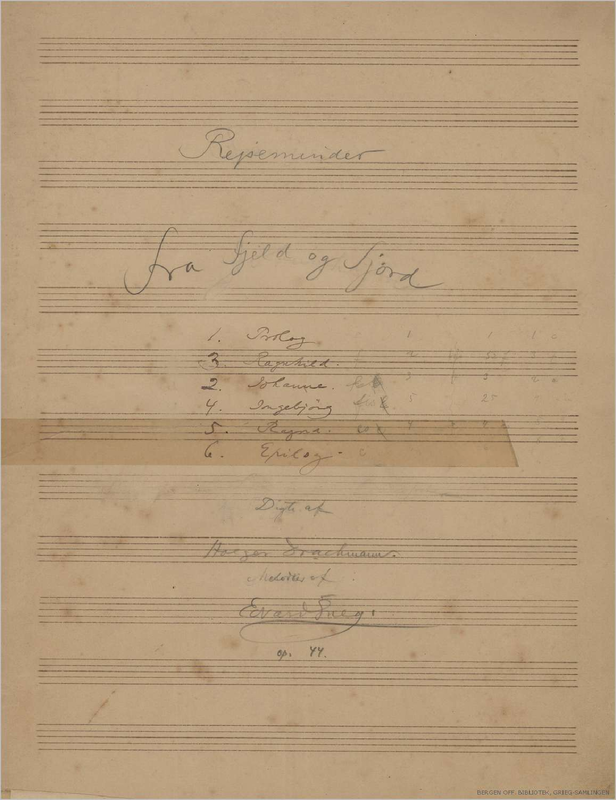 Rejseminder
fra Fjeld og Fjord
1. Prolog
3. Ragnhild.
2. Johanne.
4. Ingebjörg
5. Ragna.
6. Epilog.
Digte af
Holger Drachmann.
Melodier af
Edvard Grieg.
op. 44.
BERGEN OFF. BIBLIOTEK, GRIEG-SAMLINGEN